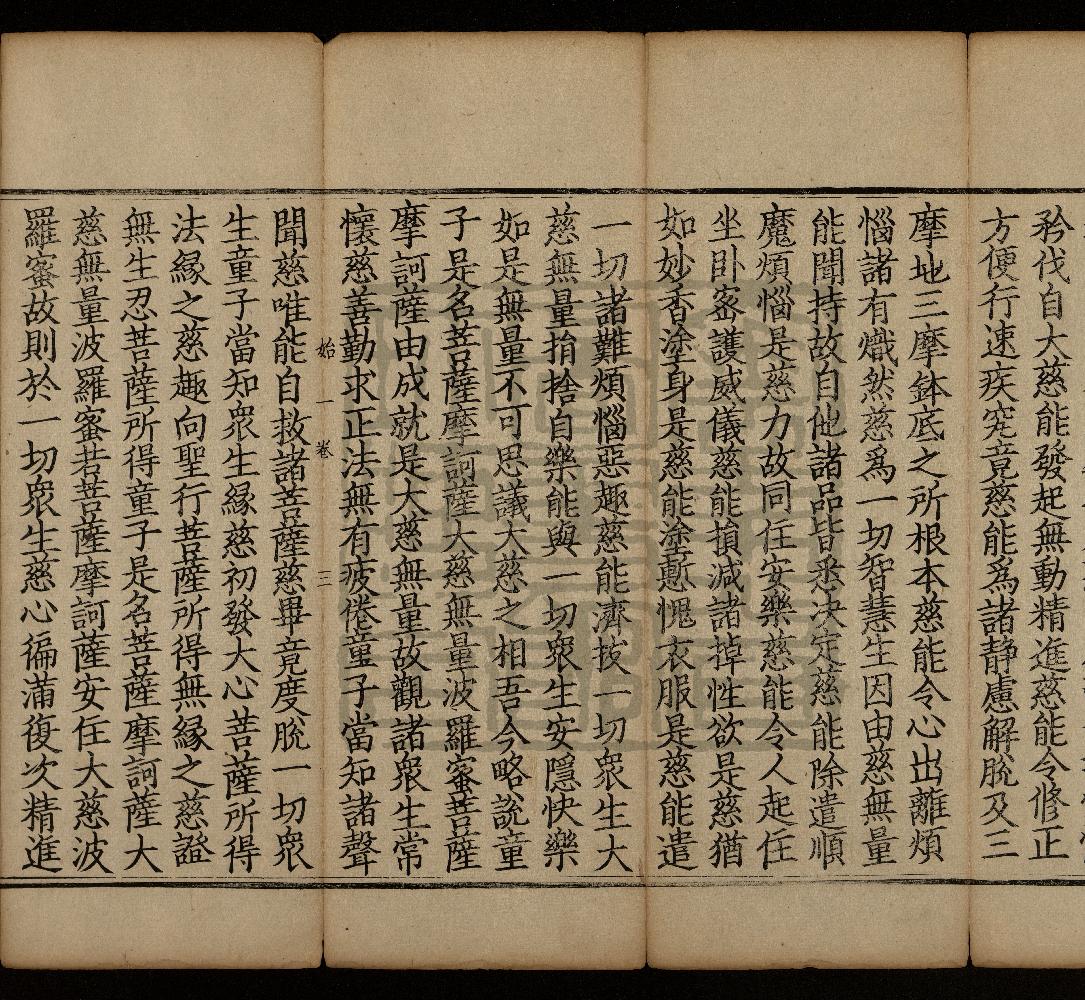 矜伐自大慈能發起無動精進慈能令修正
方便行速疾究竟慈能爲諸静慮解脫及三
摩地三摩鉢底之所根本慈能令心出離煩
惱諸有熾然慈爲一切智慧生因由慈無量
能聞持故自他諸品皆悉决定慈能除遣順
魔煩惱是慈力故同住安樂慈能令人起住
坐卧宻護威儀慈能損減諸掉性欲是慈猶
如妙香塗身是慈能塗慙愧衣服是慈能遣
一切諸難煩惱惡趣慈能濟拔一切衆生大
慈無量捐捨自樂能與一切衆生安隱快樂
如是無量不可思議大慈之相吾今略說童
子是名菩薩摩訶薩大慈無量波羅蜜菩薩
摩訶薩由成就是大慈無量故觀諸衆生常
懷慈善勤求正法無有疲倦童子當知諸聲
始一 卷 三
聞慈唯能自救諸菩薩慈畢竟度脫一切衆
生童子當知衆生緣慈初發大心菩薩所得
法緣之慈趣向聖行菩薩所得無緣之慈證
無生忍菩薩所得童子是名菩薩摩訶薩大
慈無量波羅蜜若菩薩摩訶薩安住大慈波
羅蜜故則於一切衆生慈心徧滿復次精進